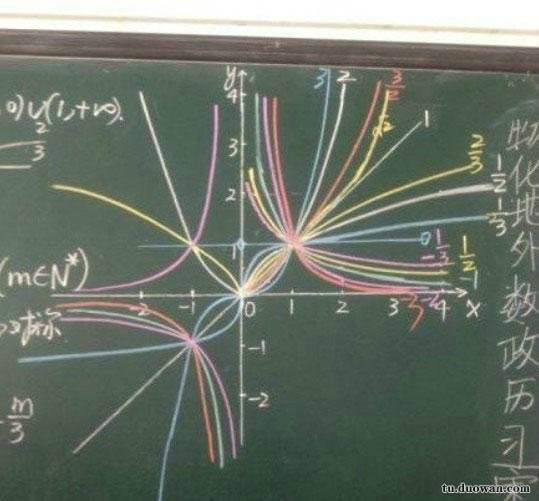 0)∪(1,+∞).
2
3
(m∈N*)
对称
m
3
y
4
3
2
-1
-2
-2 -1 0 1 2 3 4 x
3 2 3/2 √2 1
2/3
1/2
1/3
0
-1/3
1/2
-1
-3 -2
物
化
地
外
数
政
历
习
tu.duowan.com